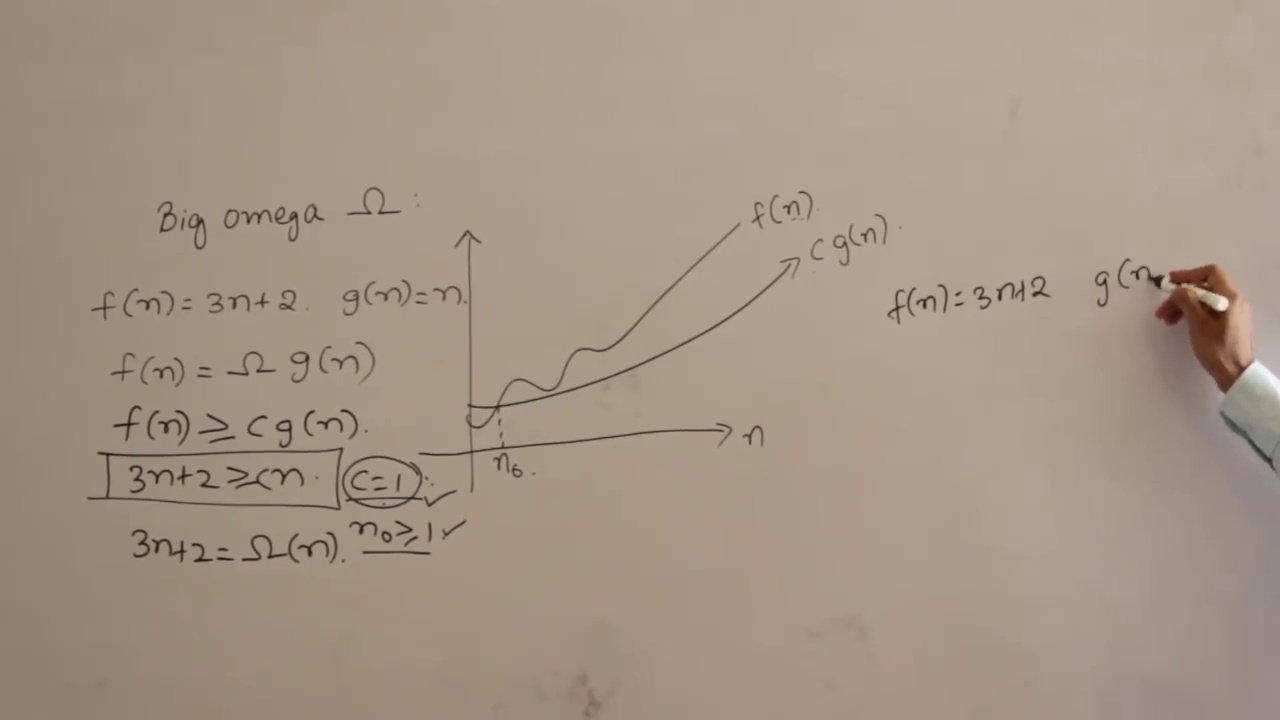 Big omega Ω :
f(n) = 3n+2. g(n) = n.
f(n) = Ω g(n)
f(n) ≥ c g(n).
3n+2 ≥ cn. c=1 ✓
3n+2 = Ω(n). n₀ ≥ 1 ✓
f(n).
c g(n).
n
n₀.
f(n) = 3n+2 g(n